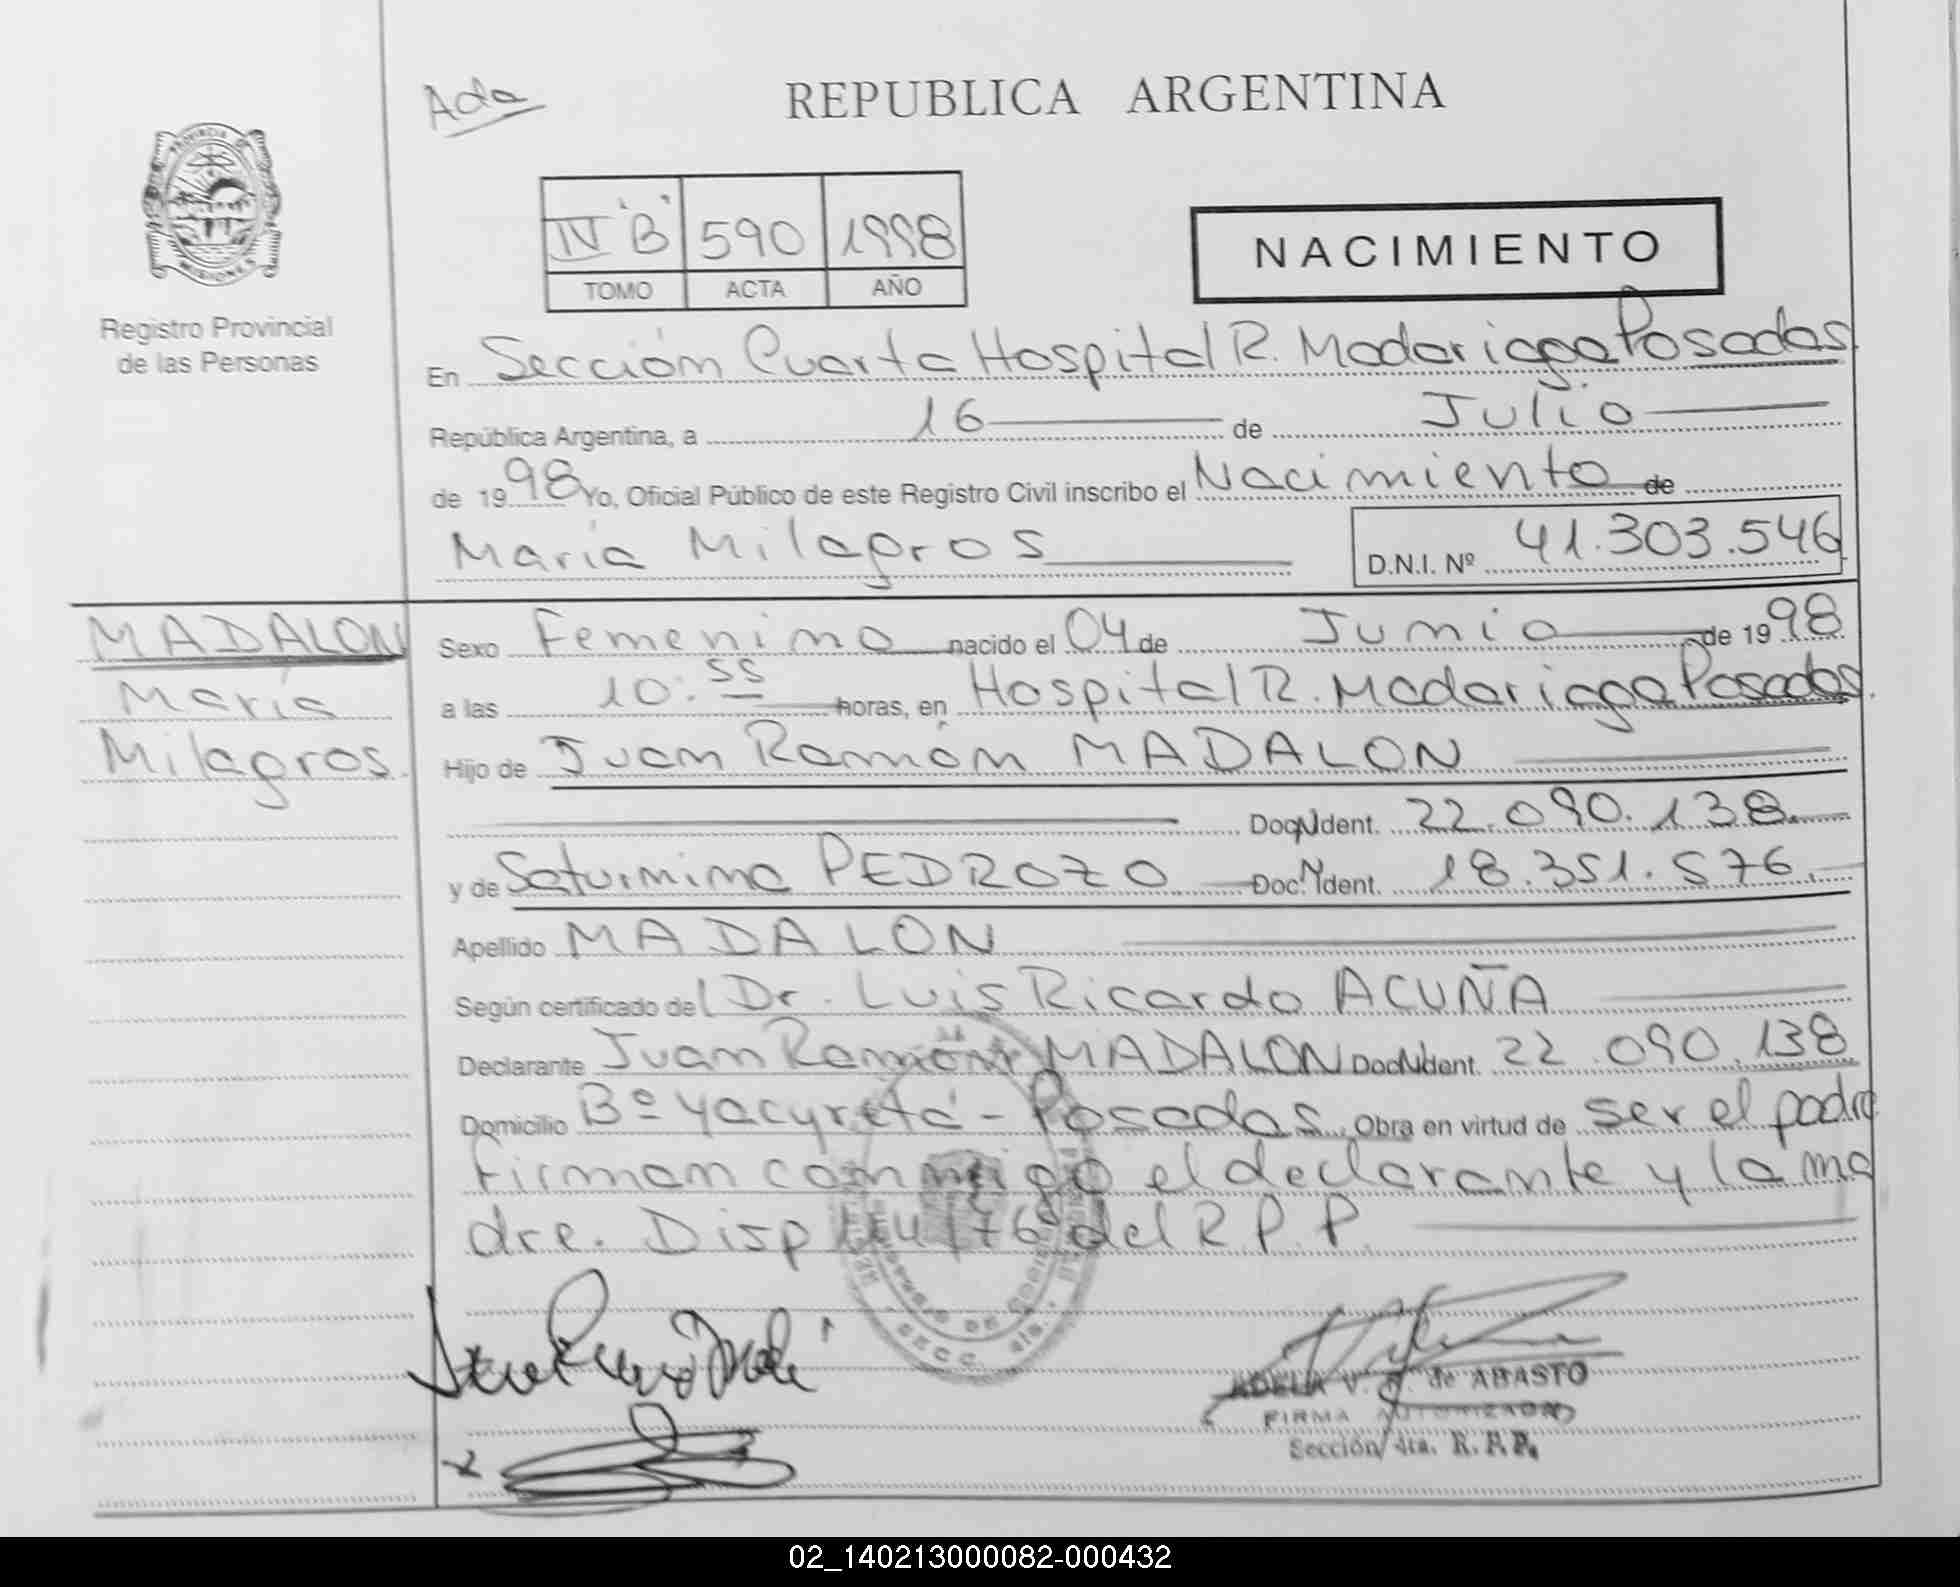 Ada
REPUBLICA ARGENTINA
PROVINCIA DE
MISIONES
IV "B" 590 1998
TOMO ACTA AÑO
NACIMIENTO
Registro Provincial
de las Personas
En Sección Cuarta Hospital R. Madariaga Posadas
República Argentina, a 16 de Julio
de 1998 Yo, Oficial Público de este Registro Civil inscribo el Nacimiento de
María Milagros
D.N.I. Nº 41.303.546
MADALON
María
Milagros.
Sexo Femenino nacido el 04 de Junio de 1998
a las 10:55 horas, en Hospital R. Madariaga Posadas.
Hijo de Juan Ramón MADALON
Doc. Ident. 22.090.138.
y de Saturnina PEDROZO Doc. Ident. 18.351.576.
Apellido MADALON
Según certificado del Dr. Luis Ricardo ACUÑA
Declarante Juan Ramón MADALON Doc. Ident. 22.090.138
Domicilio Bº Yacyretá - Posadas. Obra en virtud de ser el padre
Firman conmigo el declarante y la ma
dre. Disp 114/76 del R.P.P.
SECC. 4ta.
ADELA V. de ABASTO
FIRMA AUTORIZADA
Sección 4ta. R.P.P.
02_140213000082-000432